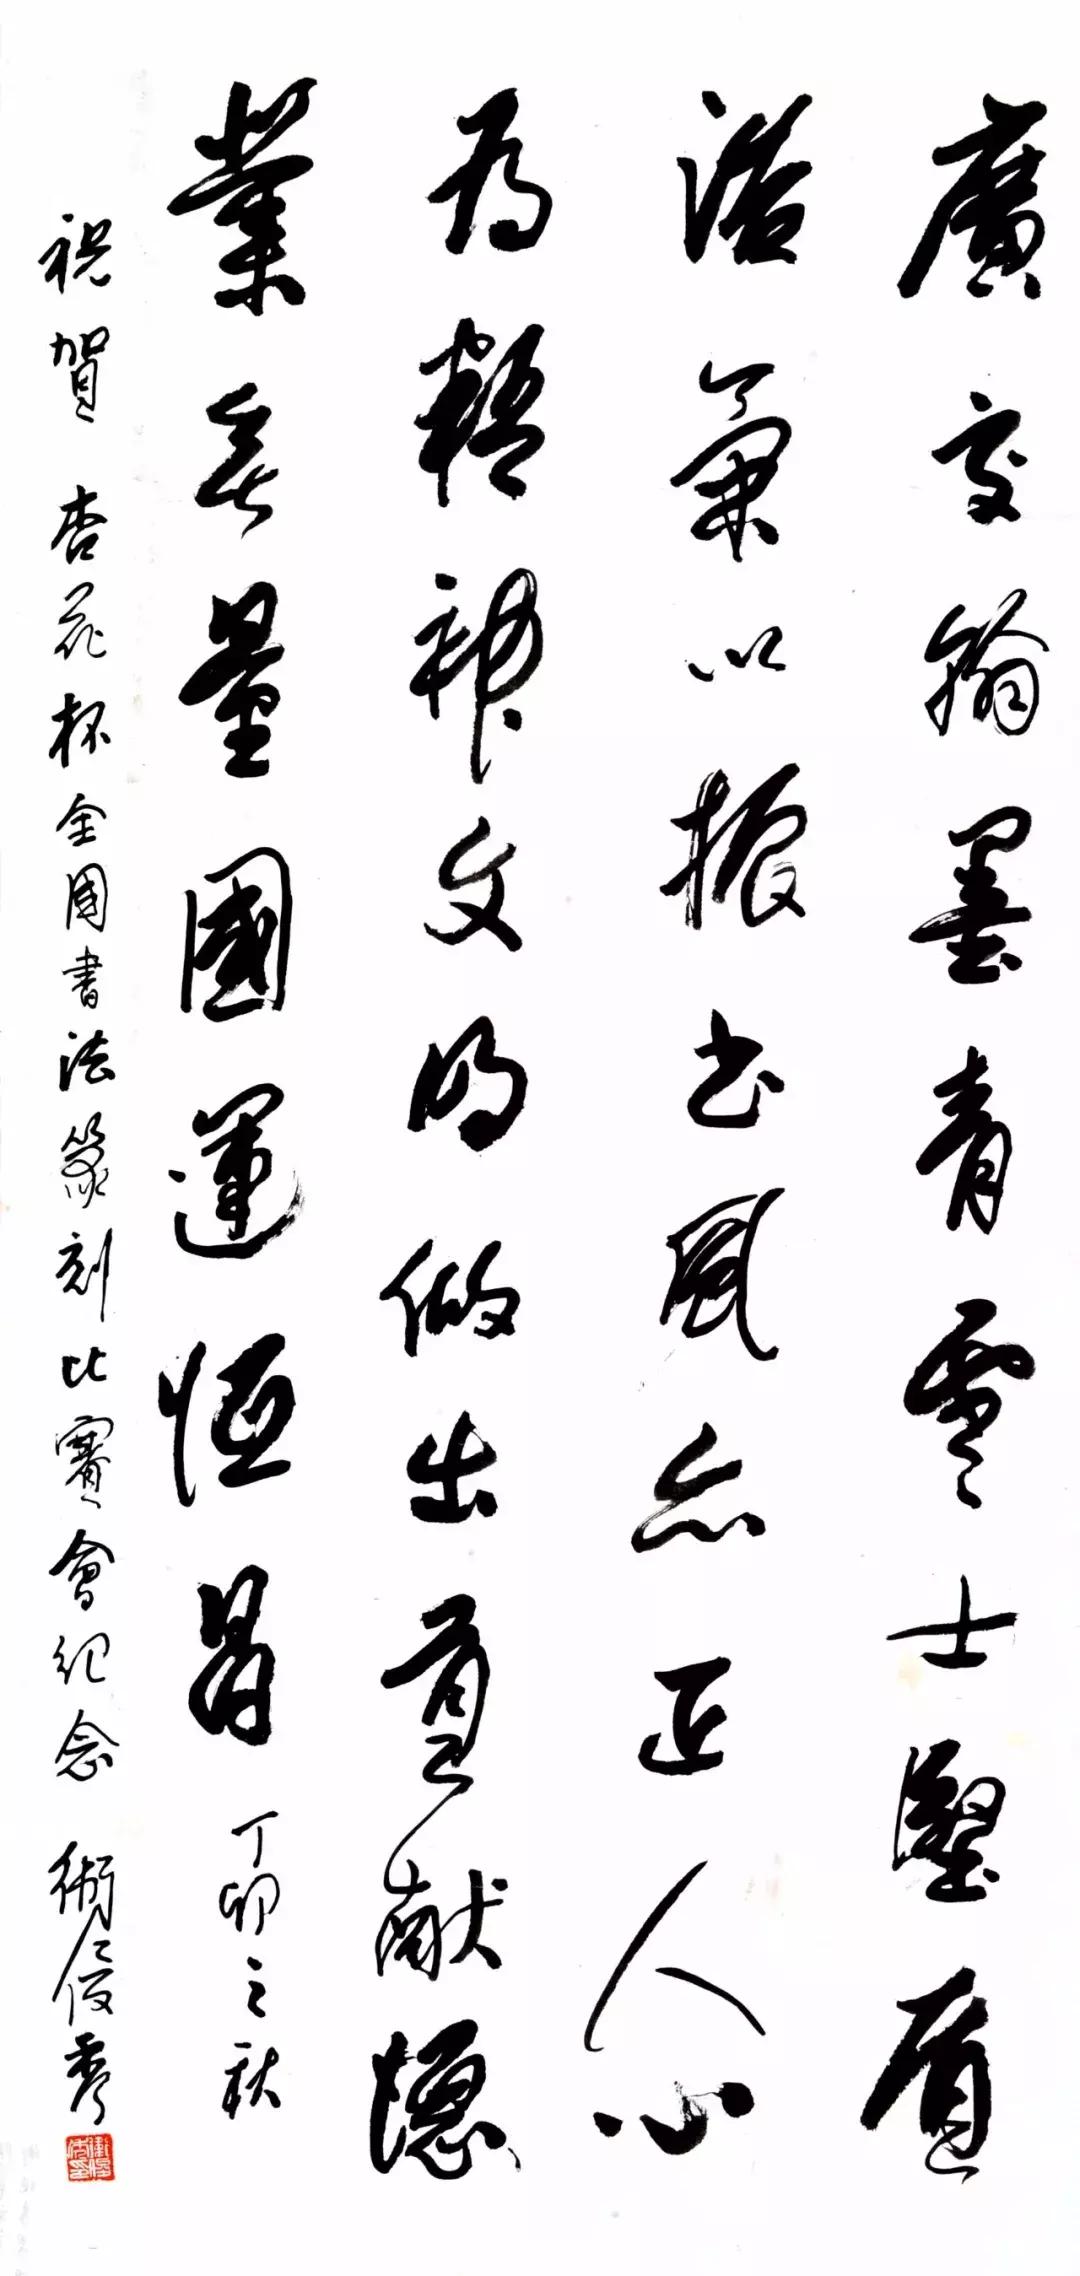 廣交翰墨青雲士
以振書風亦正人心
為精神文明做出貢献德
業無量國運恒昌 丁卯之秋
祝賀 杏花杯全國書法篆刻比賽會紀念 衛俊秀